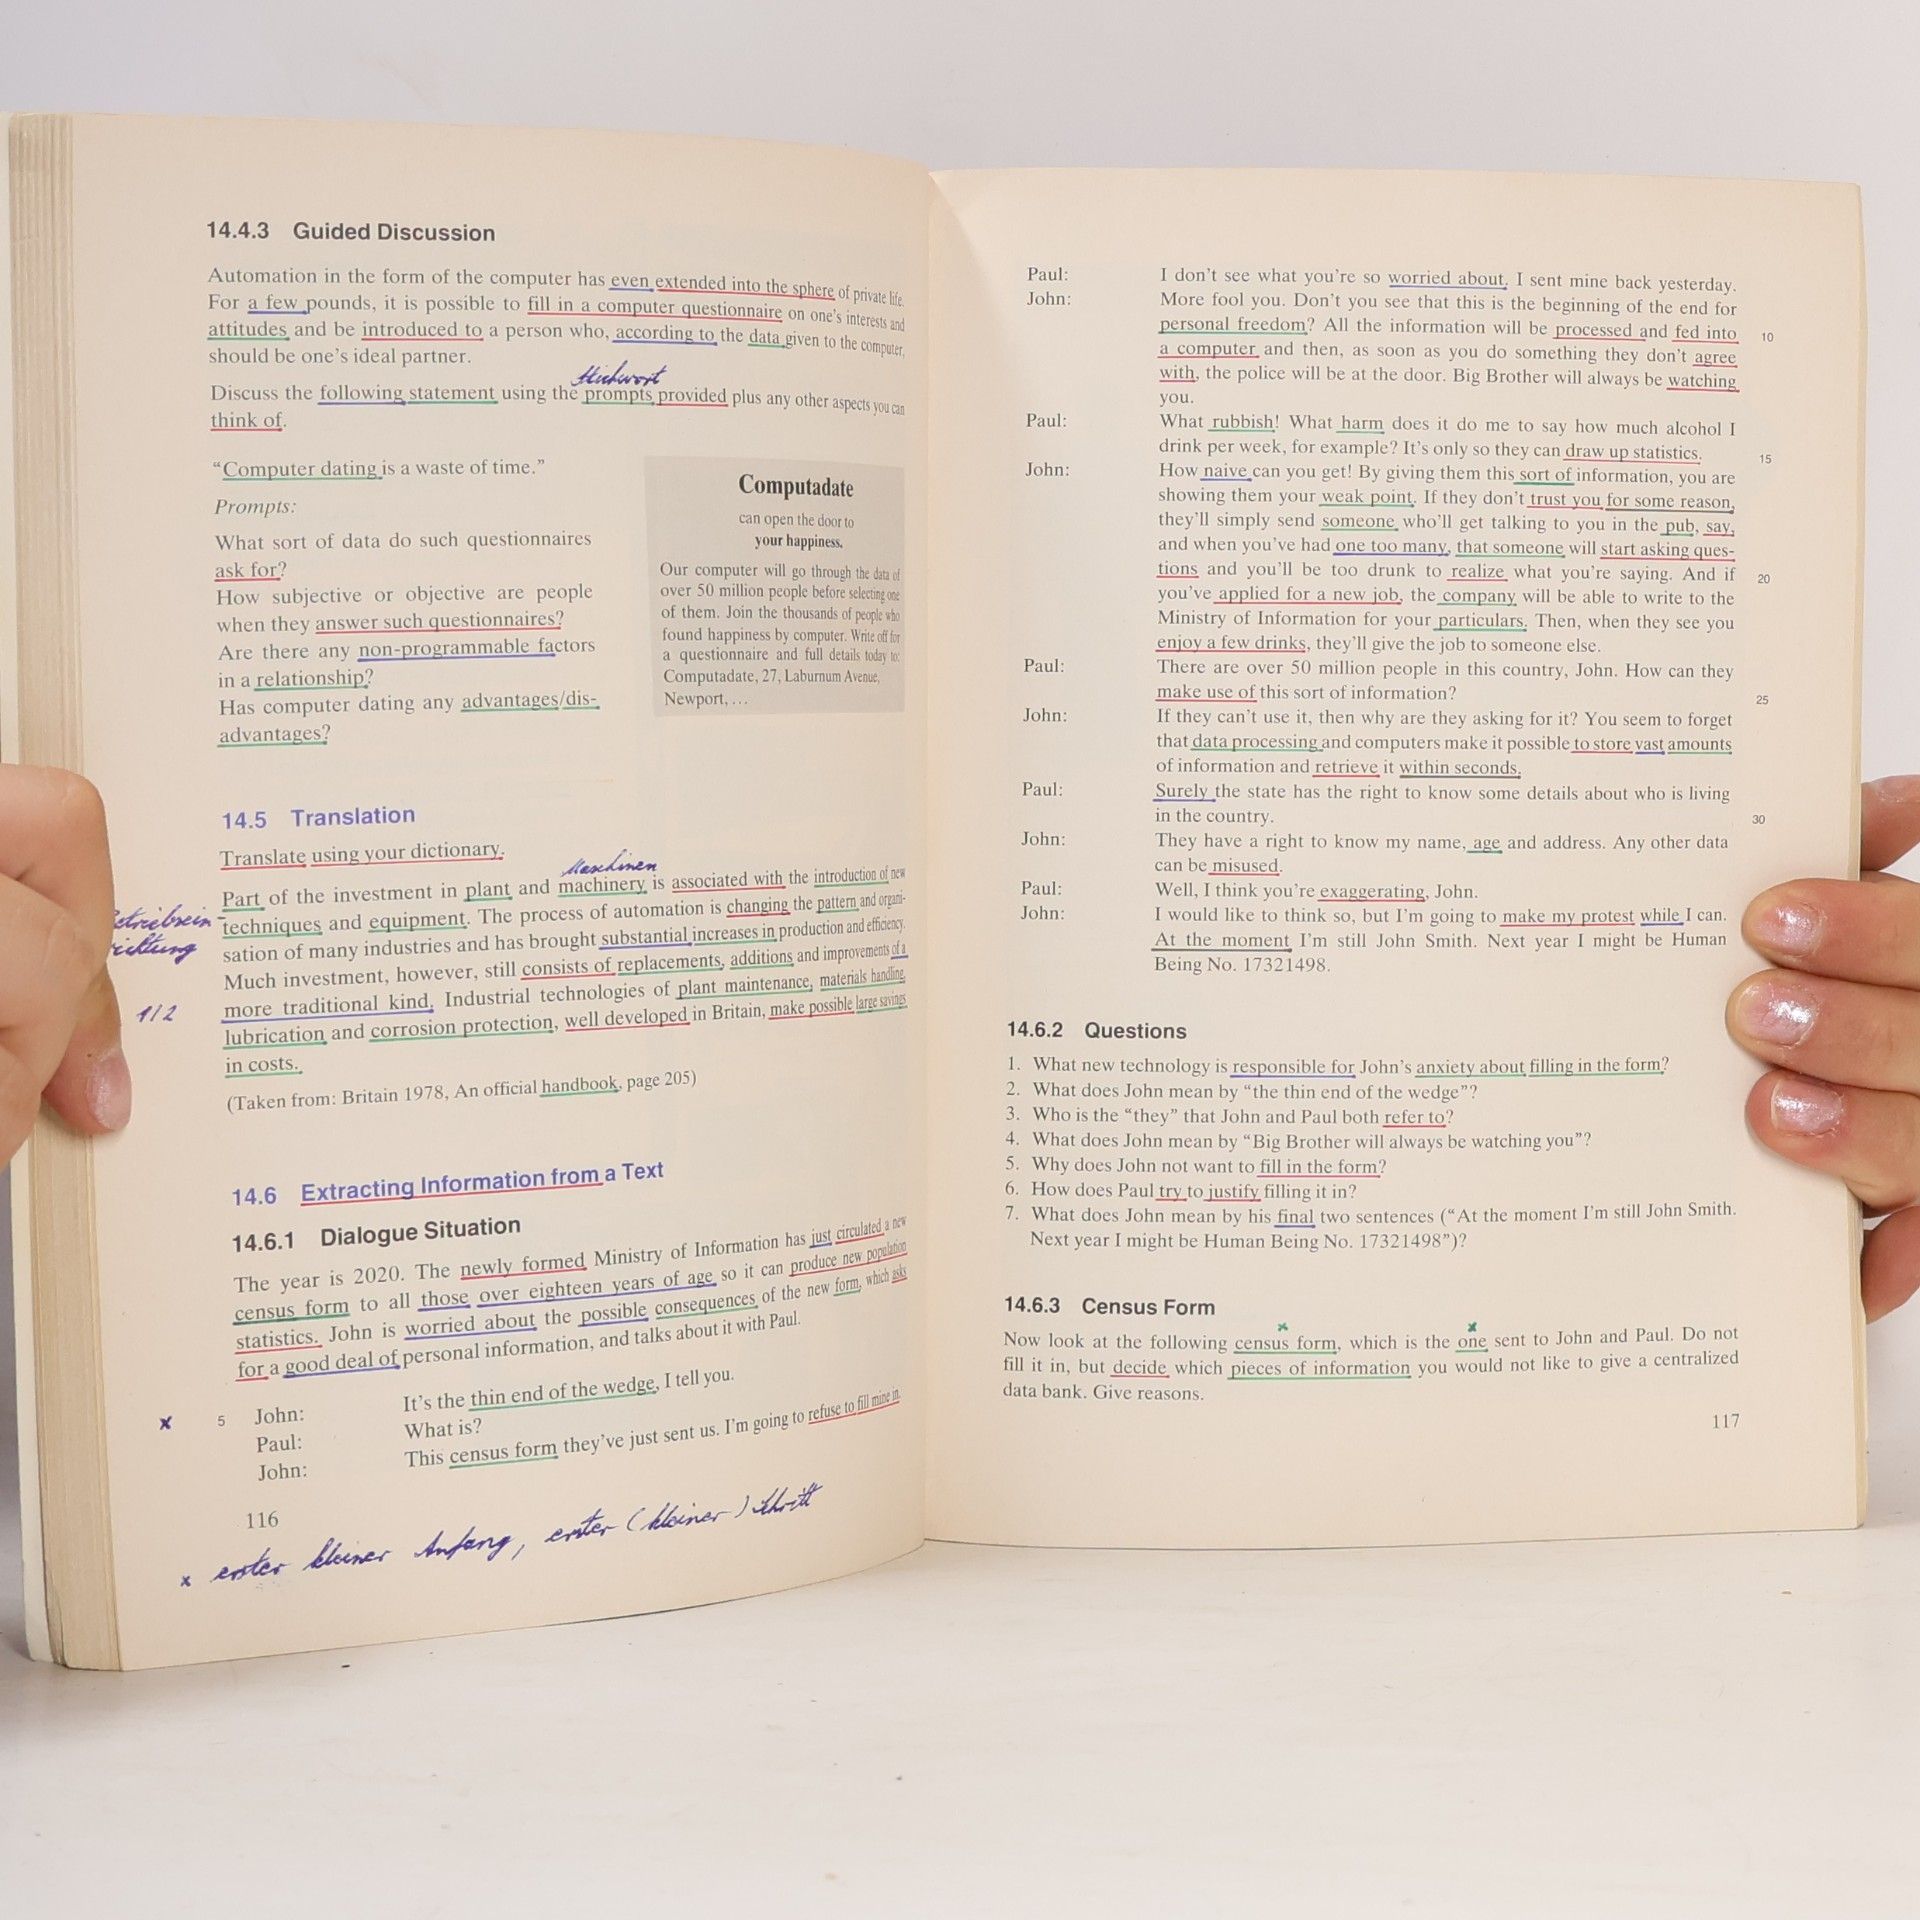 14.4.3 Guided Discussion
Automation in the form of the computer has even extended into the sphere of private life.
For a few pounds, it is possible to fill in a computer questionnaire on one's interests and
attitudes and be introduced to a person who, according to the data given to the computer,
should be one's ideal partner.
Stichwort
Discuss the following statement using the prompts provided plus any other aspects you can
think of.
“Computer dating is a waste of time.”
Prompts:
What sort of data do such questionnaires
ask for?
How subjective or objective are people
when they answer such questionnaires?
Are there any non-programmable factors
in a relationship?
Has computer dating any advantages/dis-
advantages?
Computadate
can open the door to
your happiness.
Our computer will go through the data of
over 50 million people before selecting one
of them. Join the thousands of people who
found happiness by computer. Write off for
a questionnaire and full details today to:
Computadate, 27, Laburnum Avenue,
Newport, …
14.5 Translation
Translate using your dictionary.
Maschinen
Part of the investment in plant and machinery is associated with the introduction of new
techniques and equipment. The process of automation is changing the pattern and organi-
sation of many industries and has brought substantial increases in production and efficiency.
Much investment, however, still consists of replacements, additions and improvements of a
1/2 more traditional kind. Industrial technologies of plant maintenance, materials handling,
lubrication and corrosion protection, well developed in Britain, make possible large savings
in costs.
(Taken from: Britain 1978, An official handbook, page 205)
14.6 Extracting Information from a Text
14.6.1 Dialogue Situation
The year is 2020. The newly formed Ministry of Information has just circulated a new
census form to all those over eighteen years of age so it can produce new population
statistics. John is worried about the possible consequences of the new form, which asks
for a good deal of personal information, and talks about it with Paul.
x 5 John: It's the thin end of the wedge, I tell you.
Paul: What is?
John: This census form they've just sent us. I'm going to refuse to fill mine in.
116
x erster kleiner Anfang, erster (kleiner) Schritt
Paul: I don't see what you're so worried about. I sent mine back yesterday.
John: More fool you. Don't you see that this is the beginning of the end for
personal freedom? All the information will be processed and fed into 10
a computer and then, as soon as you do something they don't agree
with, the police will be at the door. Big Brother will always be watching
you.
Paul: What rubbish! What harm does it do me to say how much alcohol I
drink per week, for example? It's only so they can draw up statistics. 15
John: How naive can you get! By giving them this sort of information, you are
showing them your weak point. If they don't trust you for some reason,
they'll simply send someone who'll get talking to you in the pub, say,
and when you've had one too many, that someone will start asking ques-
tions and you'll be too drunk to realize what you're saying. And if 20
you've applied for a new job, the company will be able to write to the
Ministry of Information for your particulars. Then, when they see you
enjoy a few drinks, they'll give the job to someone else.
Paul: There are over 50 million people in this country, John. How can they
make use of this sort of information? 25
John: If they can't use it, then why are they asking for it? You seem to forget
that data processing and computers make it possible to store vast amounts
of information and retrieve it within seconds.
Paul: Surely the state has the right to know some details about who is living
in the country. 30
John: They have a right to know my name, age and address. Any other data
can be misused.
Paul: Well, I think you're exaggerating, John.
John: I would like to think so, but I'm going to make my protest while I can.
At the moment I'm still John Smith. Next year I might be Human
Being No. 17321498.
14.6.2 Questions
1. What new technology is responsible for John's anxiety about filling in the form?
2. What does John mean by “the thin end of the wedge”?
3. Who is the “they” that John and Paul both refer to?
4. What does John mean by “Big Brother will always be watching you”?
5. Why does John not want to fill in the form?
6. How does Paul try to justify filling it in?
7. What does John mean by his final two sentences (“At the moment I'm still John Smith.
Next year I might be Human Being No. 17321498”)?
14.6.3 Census Form
Now look at the following census form, which is the one sent to John and Paul. Do not
fill it in, but decide which pieces of information you would not like to give a centralized
data bank. Give reasons.
117